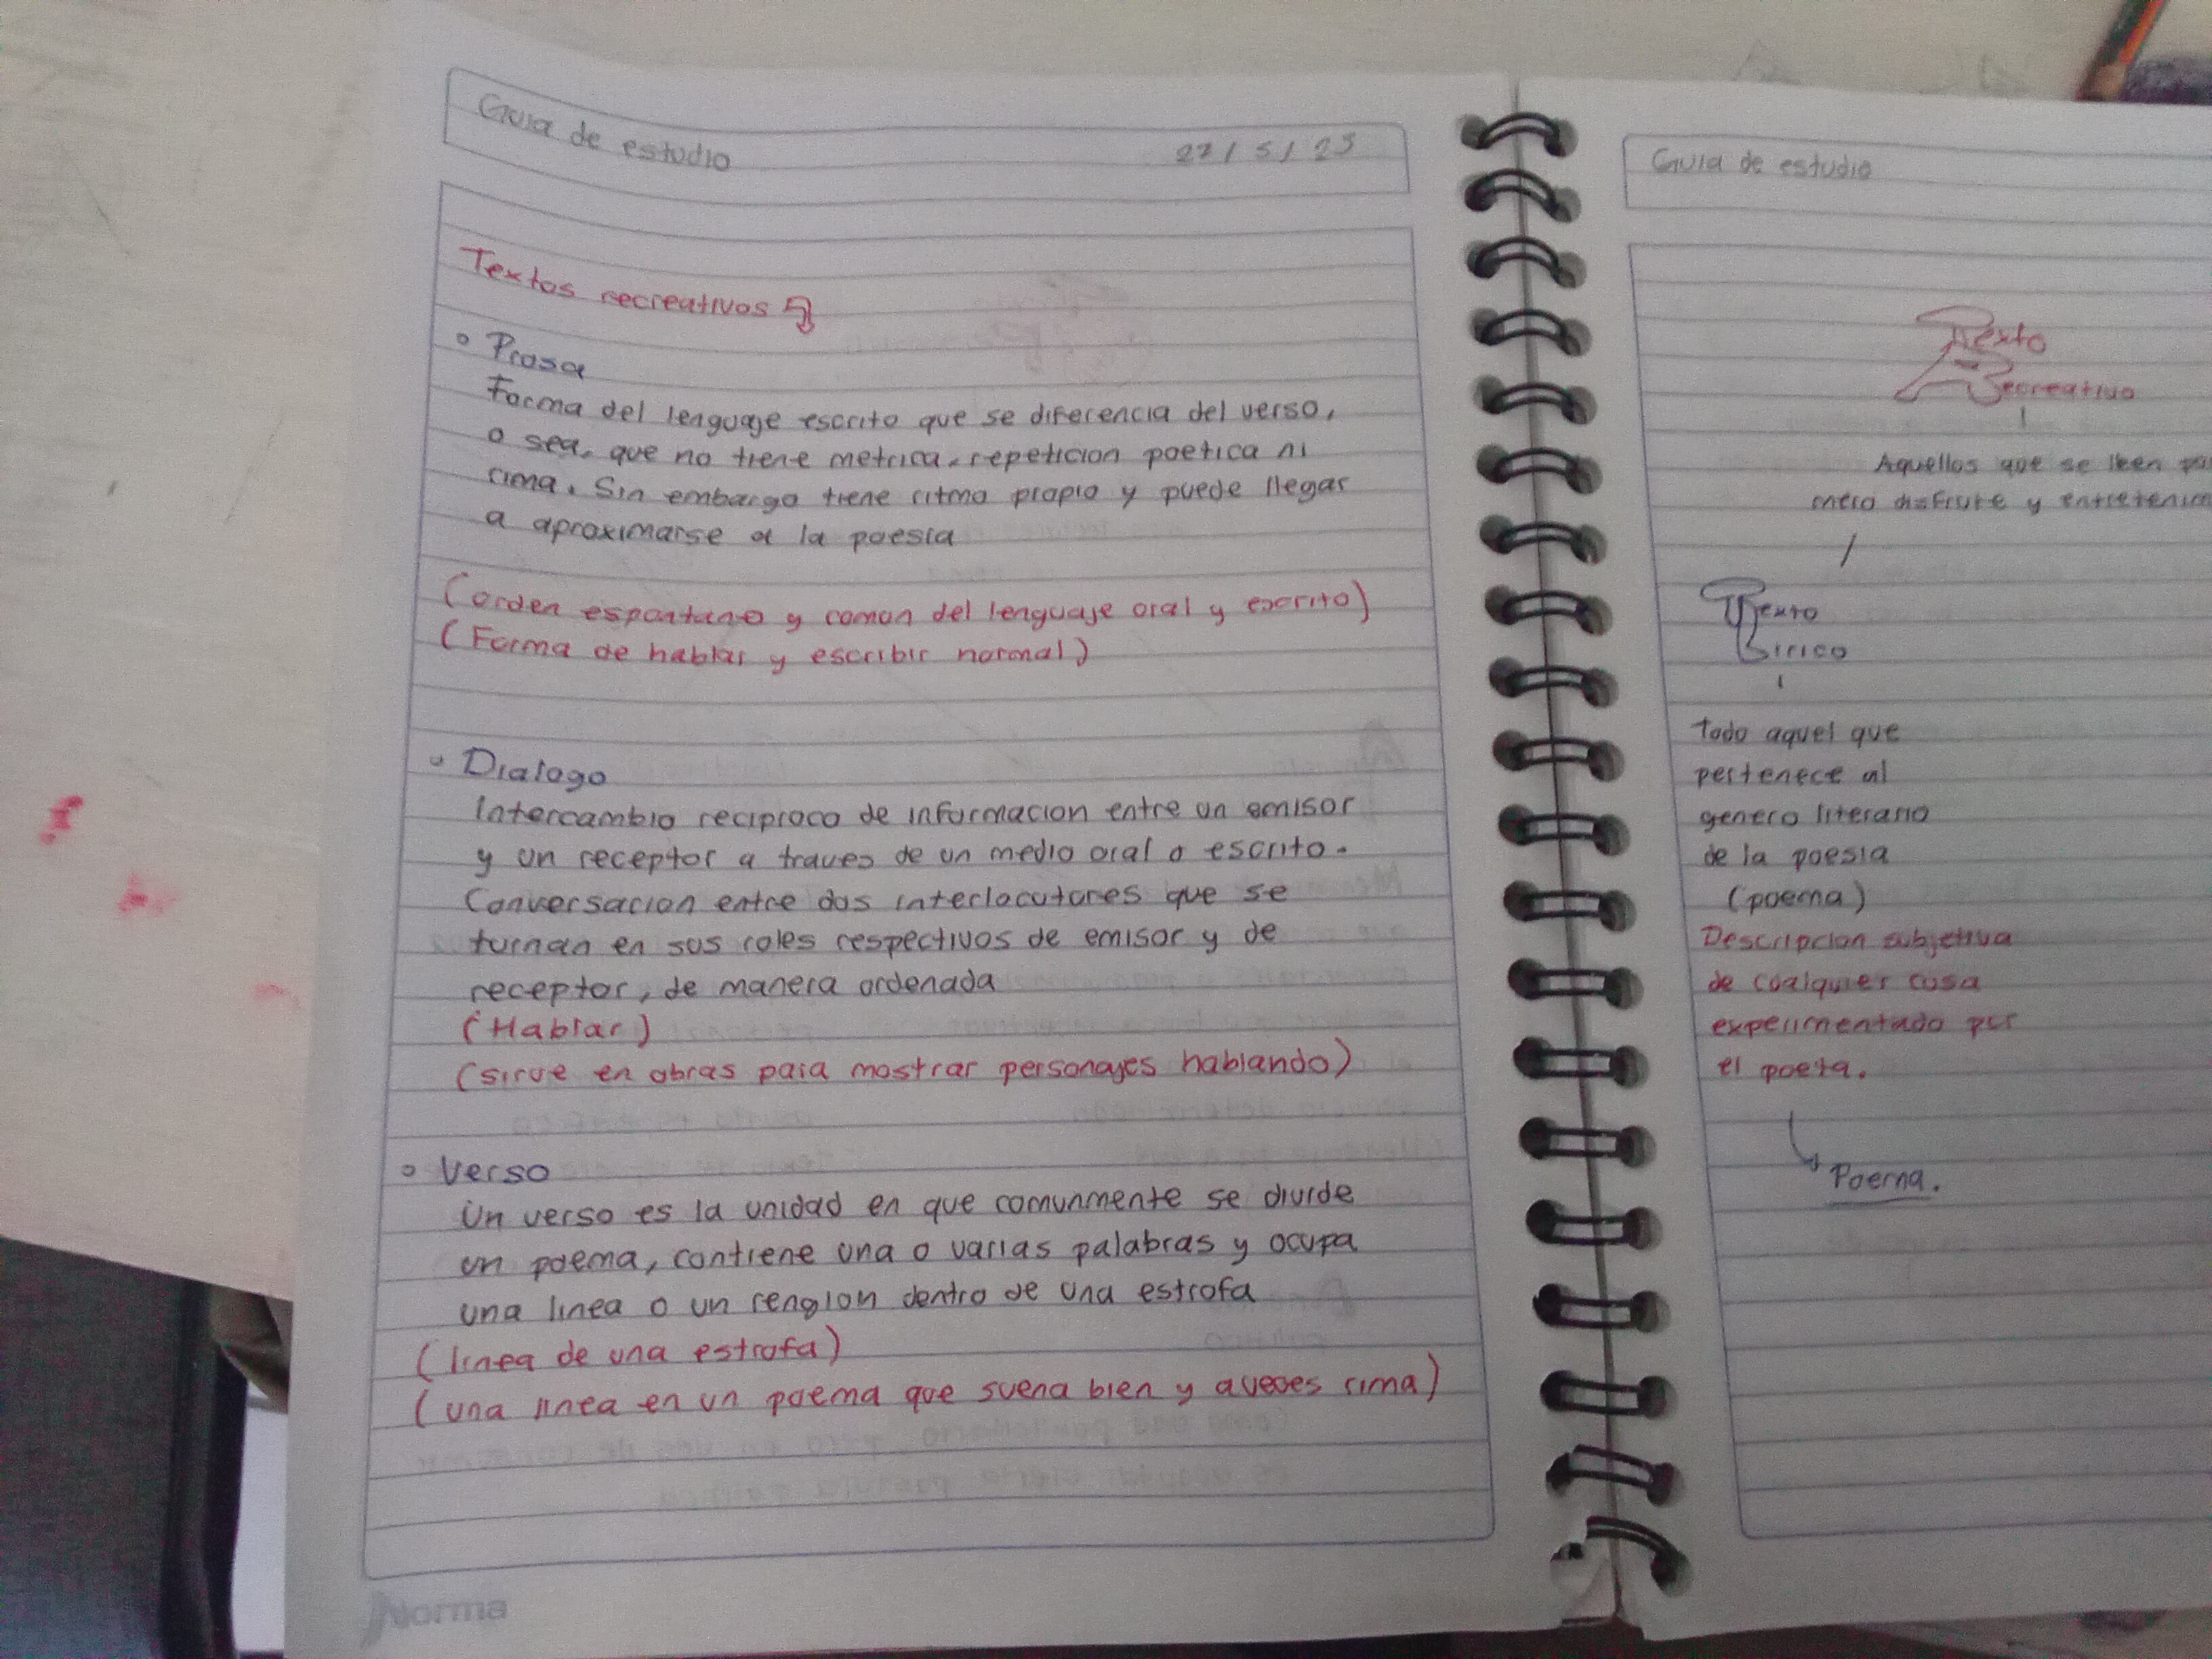 Guia de estudio 27/5/23
Textos recreativos
Prosa
Forma del lenguaje escrito que se diferencia del verso,
o sea, que no tiene metrica, repeticion poetica ni
rima. Sin embargo tiene ritmo propio y puede llegar
a aproximarse a la poesia
(orden espontano y comun del lenguaje oral y escrito)
(Forma de hablar y escribir normal)
Dialogo
Intercambio reciproco de informacion entre un emisor
y un receptor a traves de un medio oral o escrito.
Conversacion entre dos interlocutores que se
turnan en sus roles respectivos de emisor y de
receptor, de manera ordenada
(Hablar)
(sirve en obras para mostrar personajes hablando)
Verso
Un verso es la unidad en que comunmente se divide
un poema, contiene una o varias palabras y ocupa
una linea o un renglon dentro de una estrofa
(linea de una estrofa)
(una linea en un poema que suena bien y aveces rima)
Norma
Guia de estudio
Texto
Recreativo
Aquellos que se leen
mero disfrute y
Texto
Lirico
Todo aquel que
pertenece al
genero literario
de la poesia
(poema)
Descripcion subjetiva
de cualquier cosa
experimentado por
el poeta.
Poema.